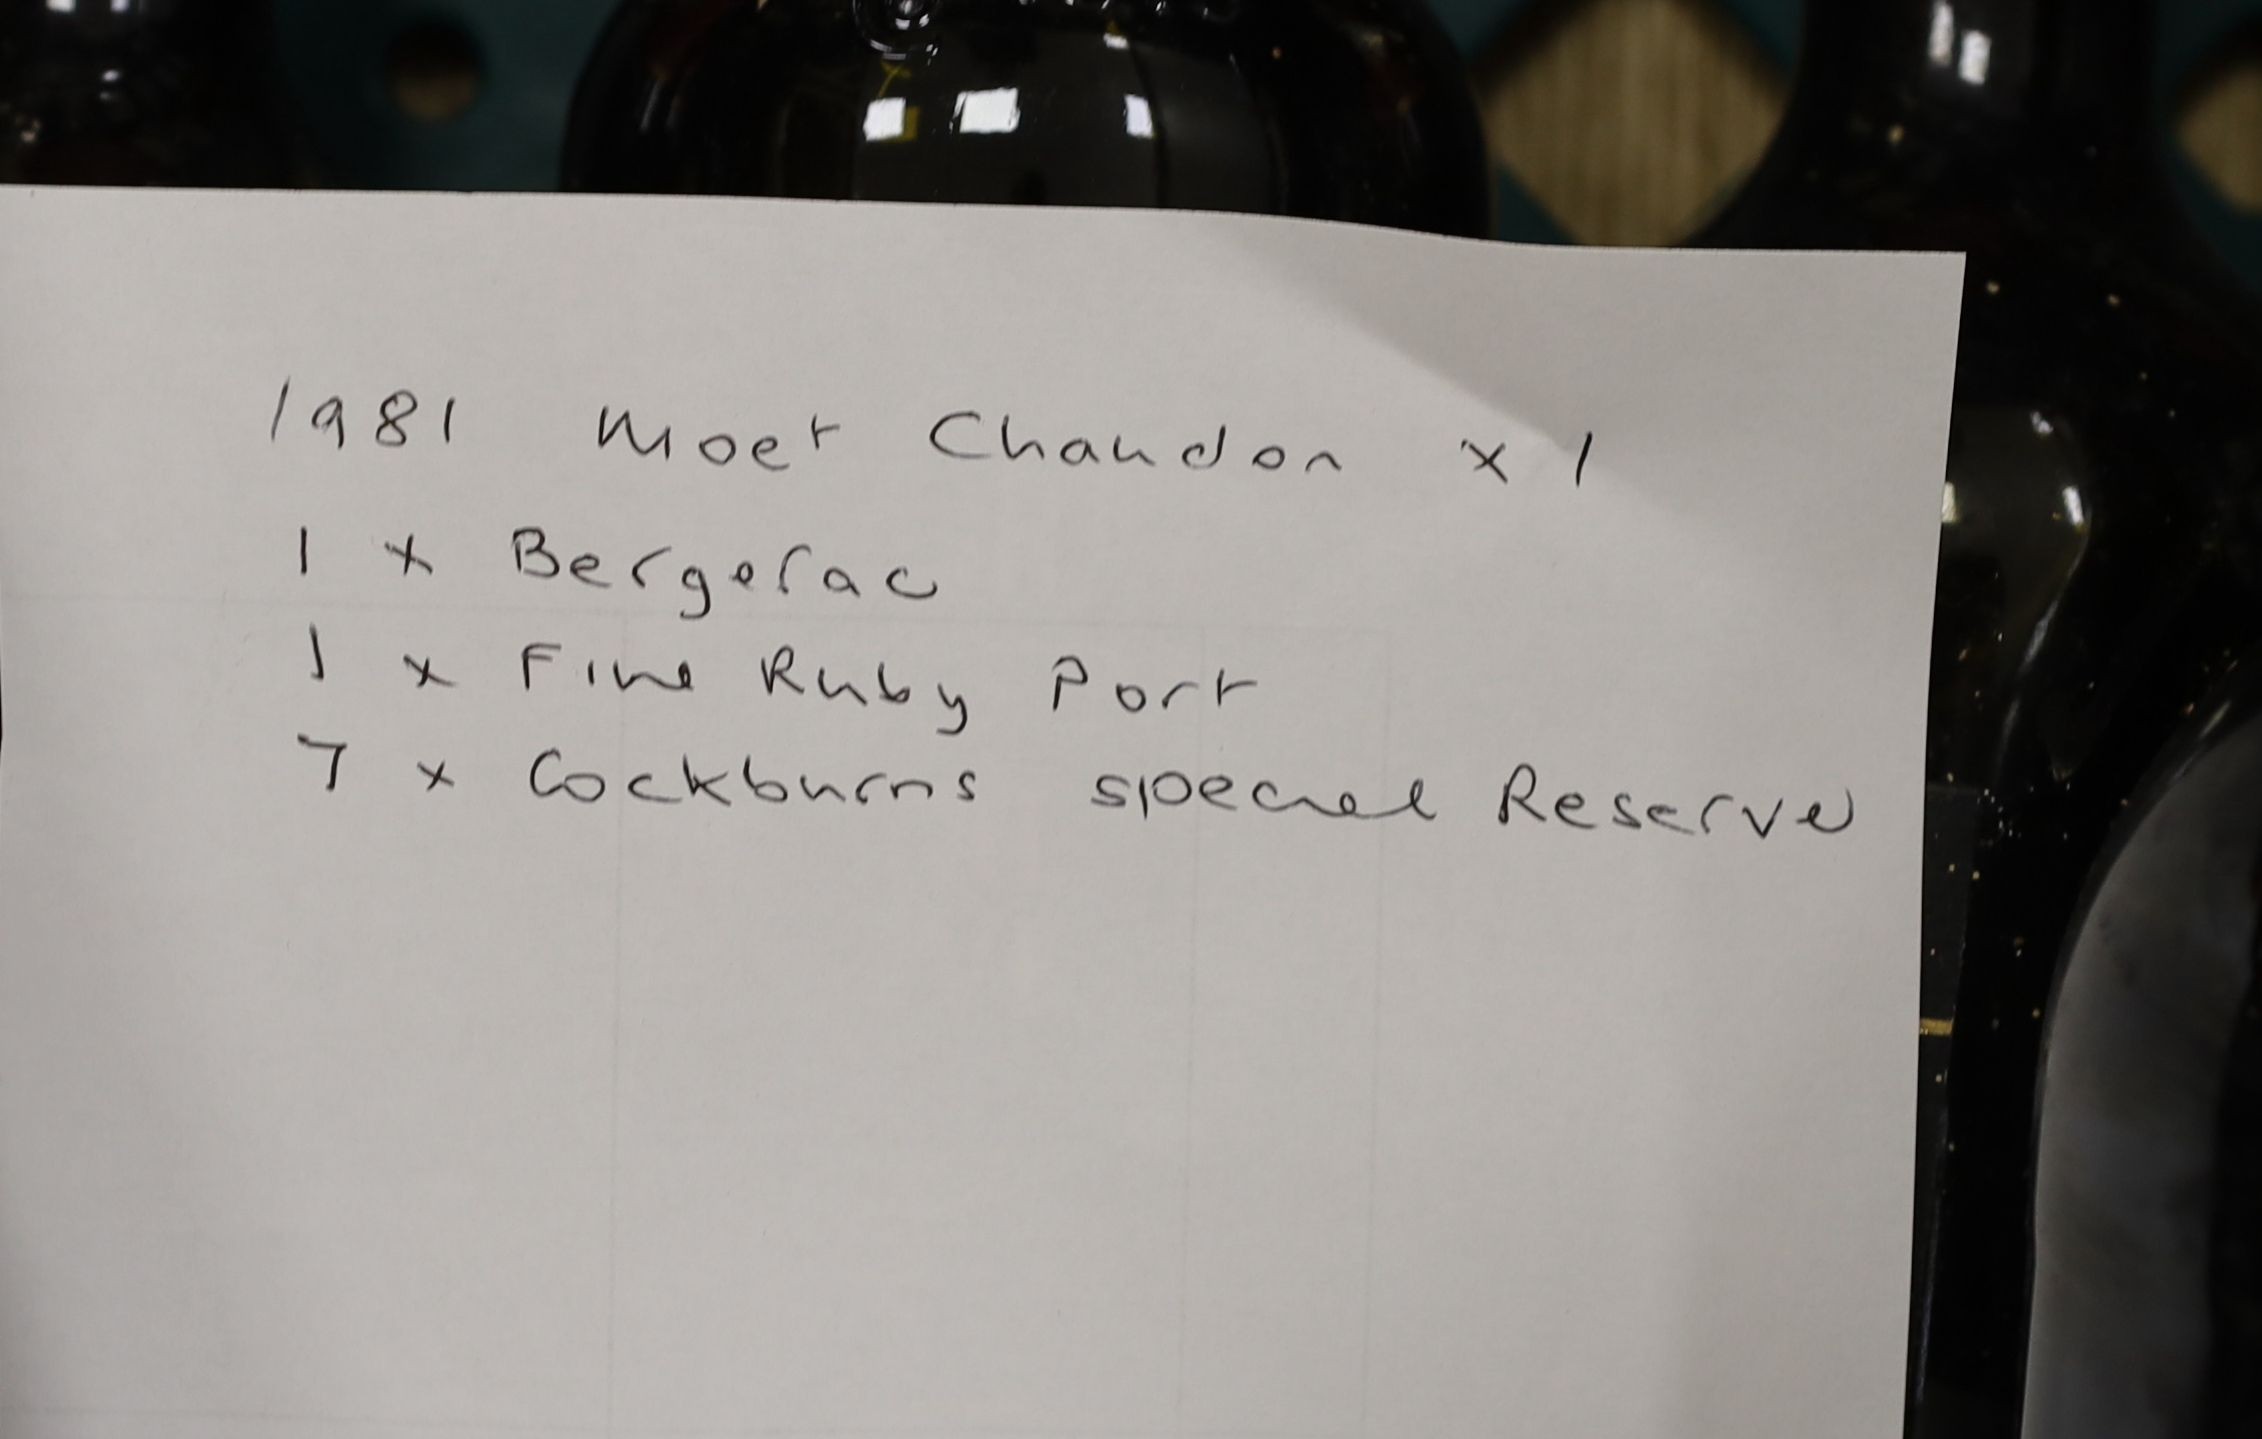 1981 Moet Chandon x 1
1 x Bergerac
1 x Fine Ruby Port
7 x Cockburns special Reserve